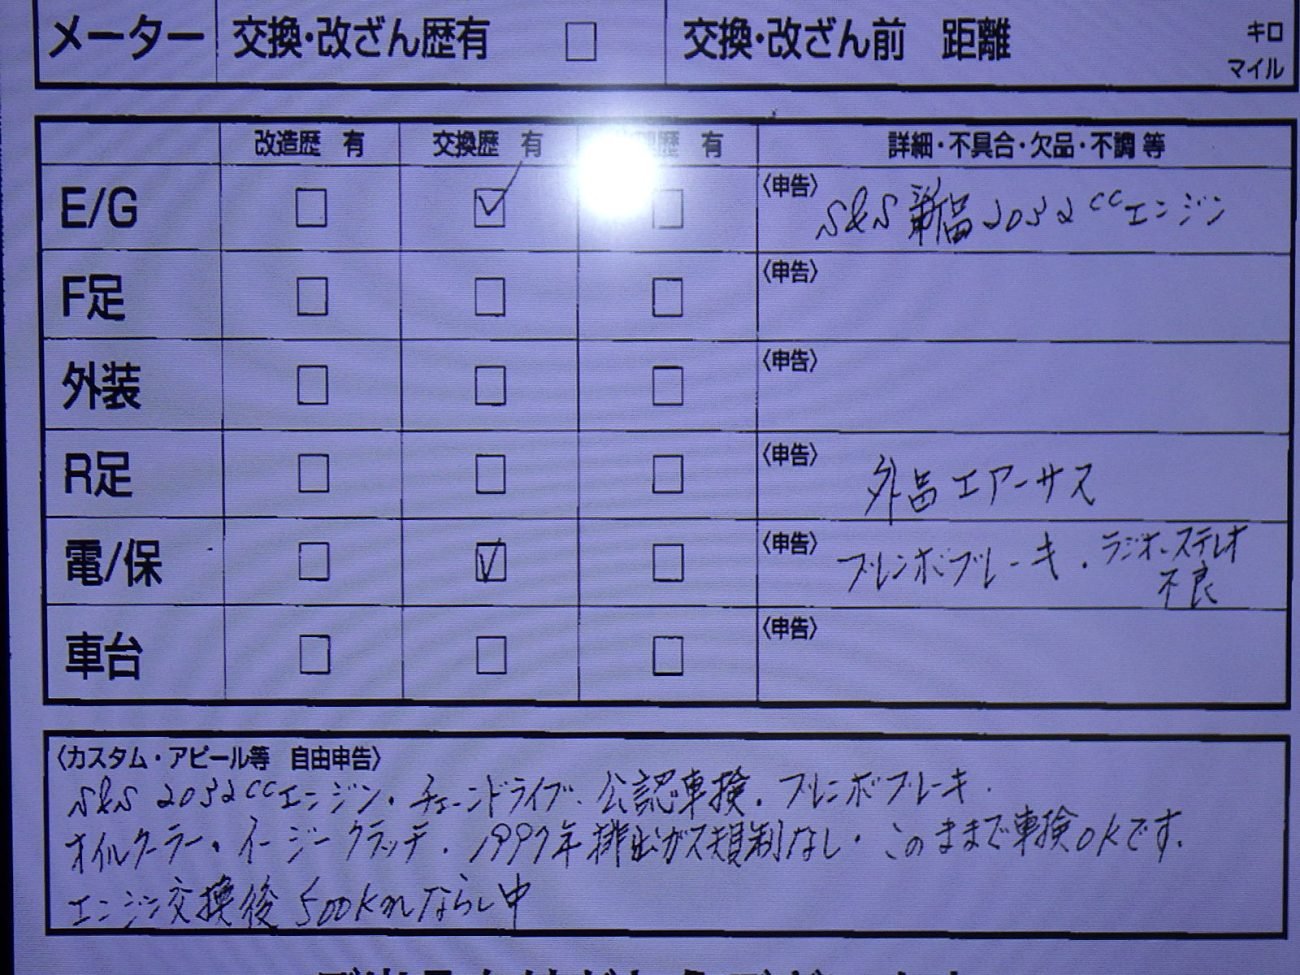 メーター 交換・改ざん歴有 □ 交換・改ざん前 距離 キロ
マイル
改造歴 有 交換歴 有 歴 有 詳細・不具合・欠品・不調 等
E/G □ ☑ □ 〈申告〉 S&S 新品 2032ccエンジン
F足 □ □ □ 〈申告〉
外装 □ □ □ 〈申告〉
R足 □ □ □ 〈申告〉 外品エアーサス
電/保 □ ☑ □ 〈申告〉 ブレンボブレーキ.ラジオ.ステレオ
不良
車台 □ □ □ 〈申告〉
〈カスタム・アピール等 自由申告〉
S&S 2032ccエンジン.チェーンドライブ.公認車検.ブレンボブレーキ.
オイルクーラー.イージークラッチ.1997年排出ガス規制なし.このままで車検OKです.
エンジン交換後500kmならし中